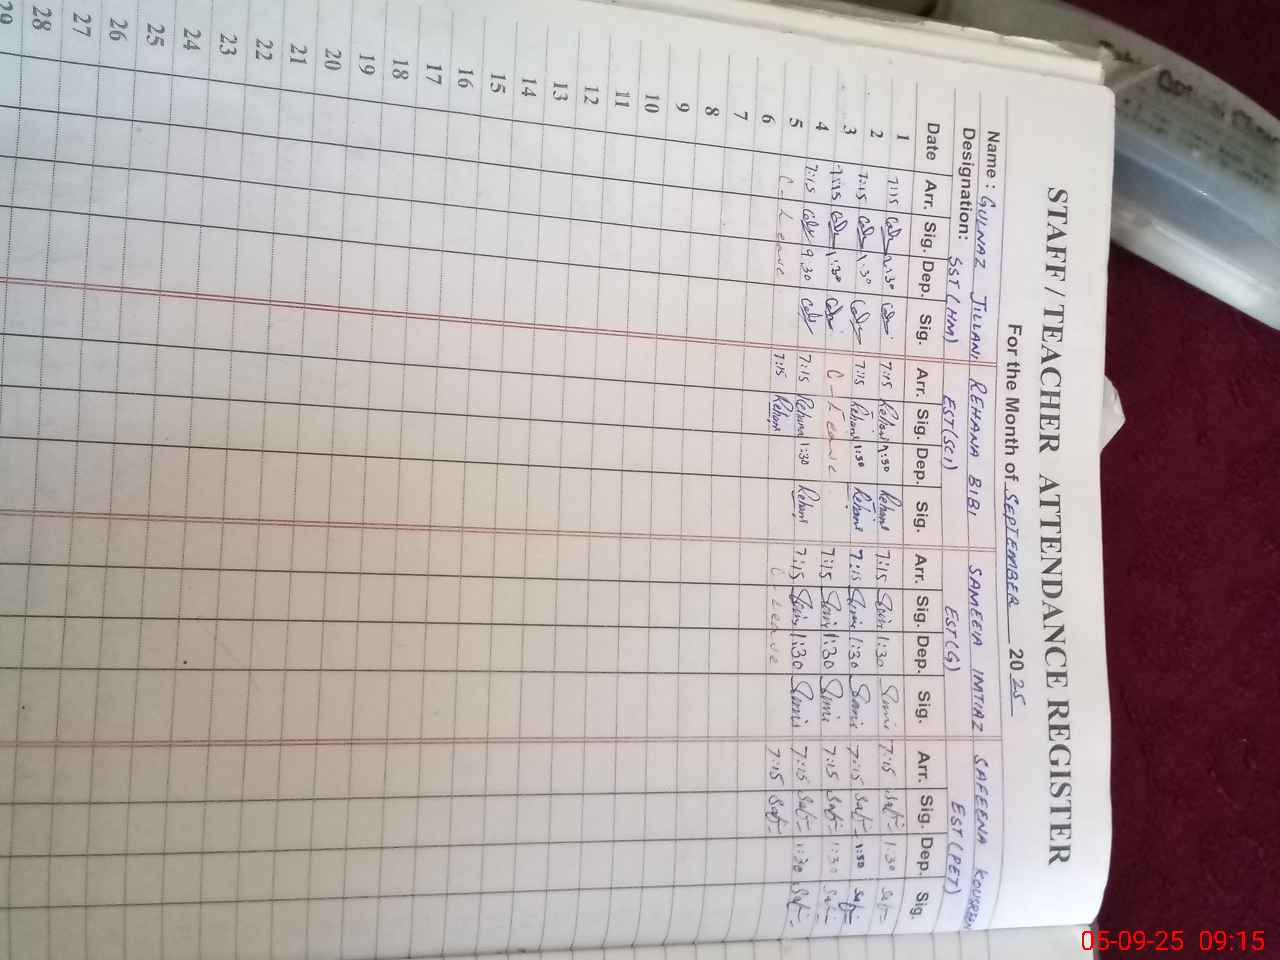 STAFF/TEACHER ATTENDANCE REGISTER
For the Month of SEPTEMBER 2025
Name: GULNAZ JILLANI REHANA BIBI SAMEEIA IMTIAZ SAFEENA KOUSER
Designation: SST (HM) EST (SCI) EST (G) EST (PET)
Date Arr. Sig. Dep. Sig. Arr. Sig. Dep. Sig. Arr. Sig. Dep. Sig. Arr. Sig. Dep. Sig.
1 7:15 7:15 Rehana 1:30 Rehana 7:15 1:30 7:15 Saf 1:30 Saf
2 7:15 1:30 7:15 Rehana 1:30 Rehana 7:15 1:30 7:15 Saf 1:30 Saf
3 7:15 1:30 C-Leave 7:15 1:30 7:15 Saf 1:30 Saf
4 7:15 9.30 7:15 Rehana 1:30 Rehana 7:15 1:30 7:15 Saf 1:30 Saf
5 C-Leave 7:15 Rehana C Leave 7:15 Saf
6
7
8
9
10
11
12
13
14
15
16
17
18
19
20
21
22
23
24
25
26
27
28
29
05-09-25 09:15